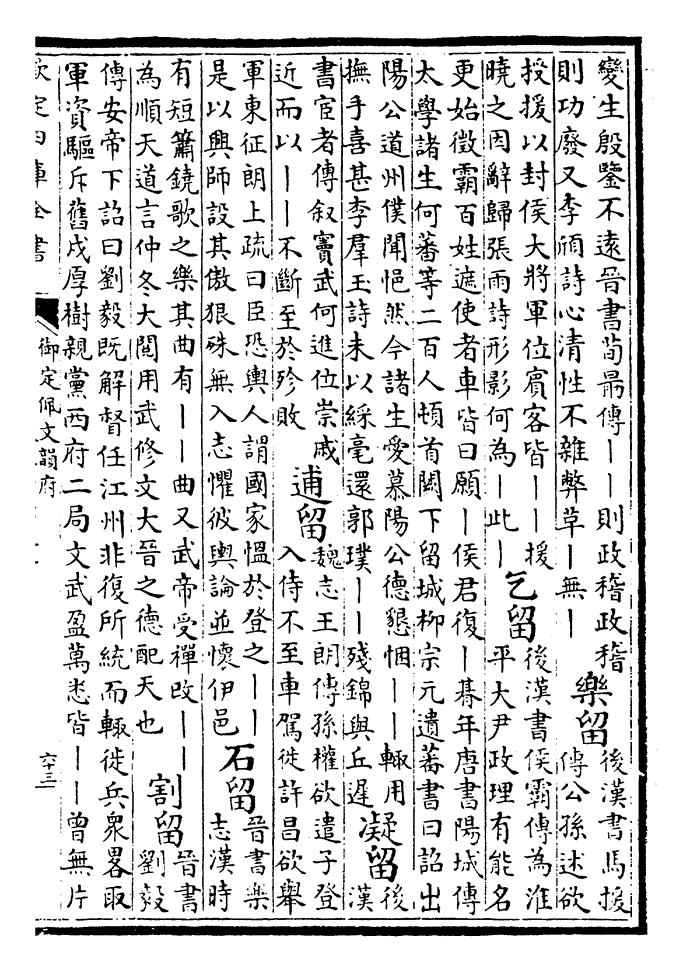 變生殷鑒不遠晉書荀朂傳丨丨則政稽政稽
則功廢又李頎詩心清性不雜弊草丨無丨
樂留
後漢書馬援
傳公孫述欲
授援以封侯大將軍位賓客皆丨丨援
曉之因辭歸張雨詩形影何為丨此丨
乞留
後漢書侯霸傳為淮
平大尹政理有能名
更始徵霸百姓遮使者車皆曰願丨侯君復丨朞年唐書陽城傳
太學諸生何蕃等二百人頓首闕下留城柳宗元遺蕃書曰詔出
陽公道州僕聞悒然今諸生愛慕陽公德懇悃丨丨輙用
撫手喜甚李羣玉詩未以綵毫還郭璞丨丨殘錦與丘遲
凝留
後
漢
書宦者傳叙竇武何進位崇戚
近而以丨丨不斷至於殄敗
逋留
魏志王朗傳孫權欲遣子登
入侍不至車駕徙許昌欲舉
軍東征朗上疏曰臣恐輿人謂國家慍於登之丨丨
是以興師設其傲狠殊無入志懼彼輿論並懷伊邑
石留
晉書樂
志漢時
有短簫鐃歌之樂其曲有丨丨曲又武帝受禪改丨丨
為順天道言仲冬大閱用武修文大晉之德配天也
割留
晉書
劉毅
傳安帝下詔曰劉毅既解督任江州非復所統而輙徙兵衆畧取
軍資驅斥舊戍厚樹親黨西府二局文武盈萬悉皆丨丨曾無片
欽定四庫全書
御定佩文韻府
六十三